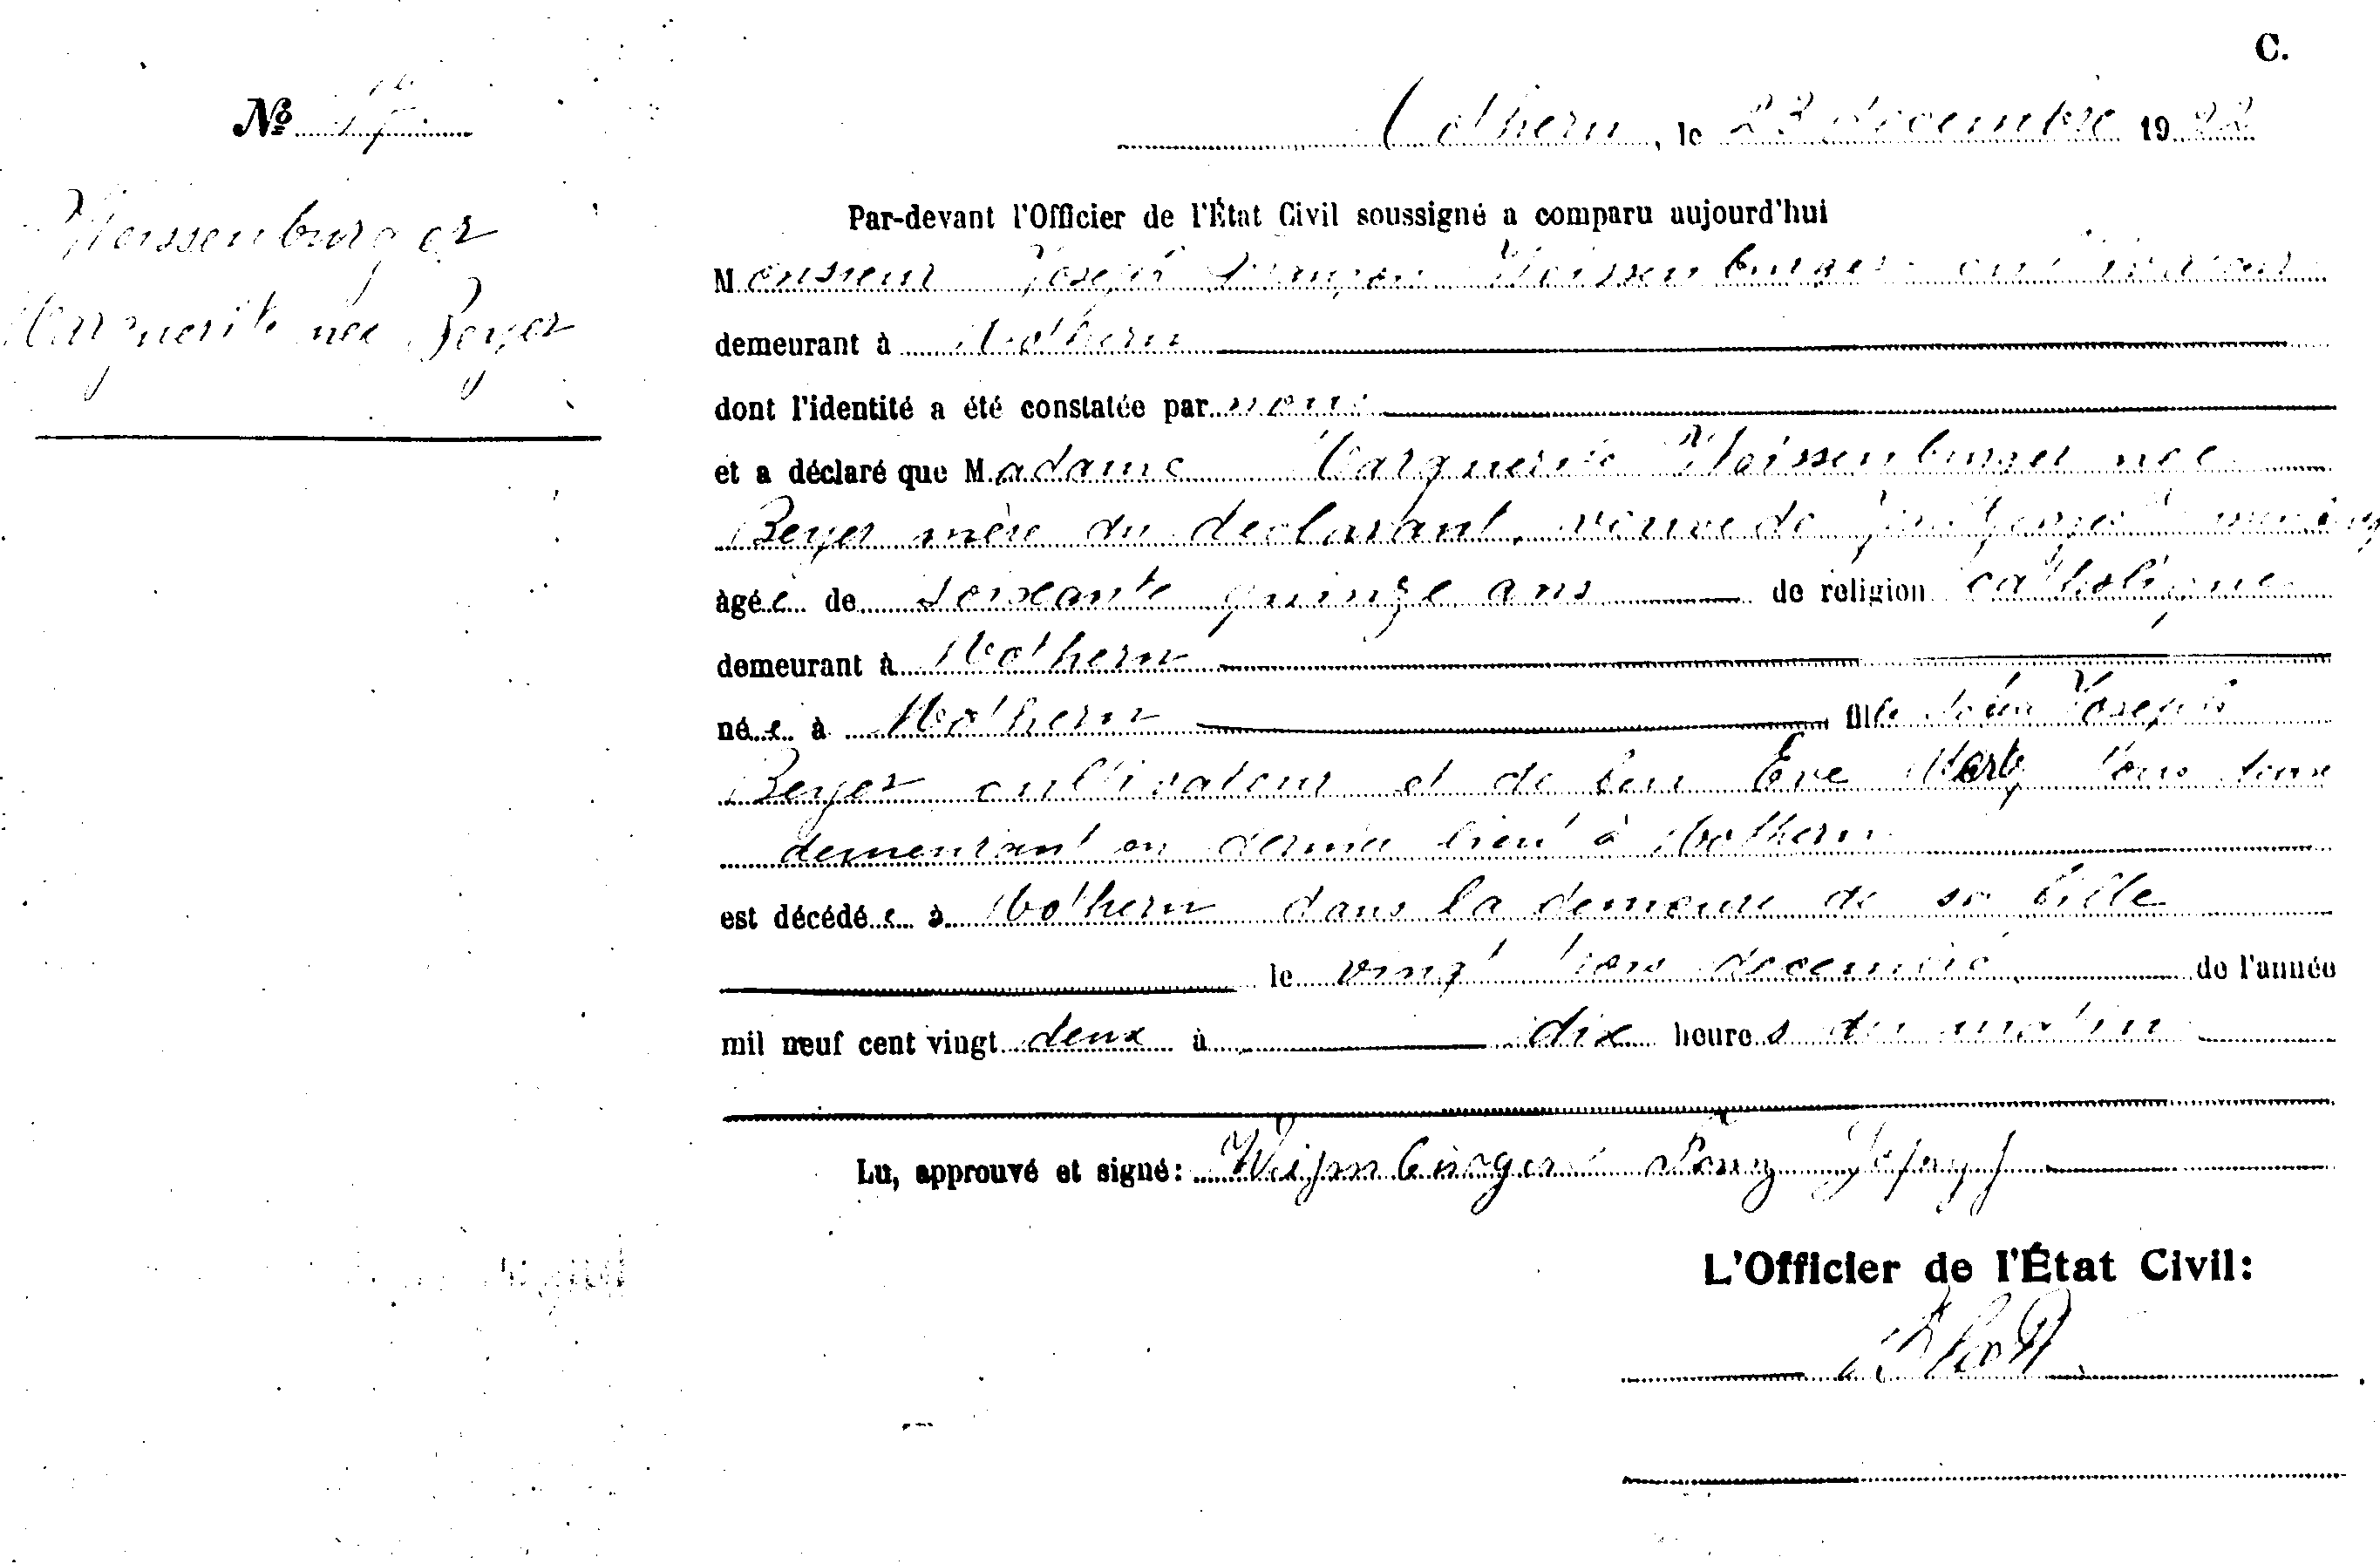 C.
Nº
Mothern, le 23 décembre 1922
Weissenburger
Marguerite née Beyer
Par-devant l'Officier de l'État Civil soussigné a comparu aujourd'hui
Monsieur Joseph François Weissenburger cultivateur
demeurant à Mothern
dont l'identité a été constatée par nous
et a déclaré que Madame Marguerite Weissenburger née
Beyer mère du déclarant, veuve de
âgée de soixante quinze ans de religion catholique
demeurant à Mothern
née à Mothern fille Joseph
Beyer cultivateur et de feu Eve tous deux
demeurant en dernier lieu à Mothern
est décédée à Mothern dans la demeure de sa fille
le vingt trois décembre de l'année
mil neuf cent vingt deux à dix heures du matin
Lu, approuvé et signé: Weissenburger Franz Joseph
L'Officier de l'État Civil: